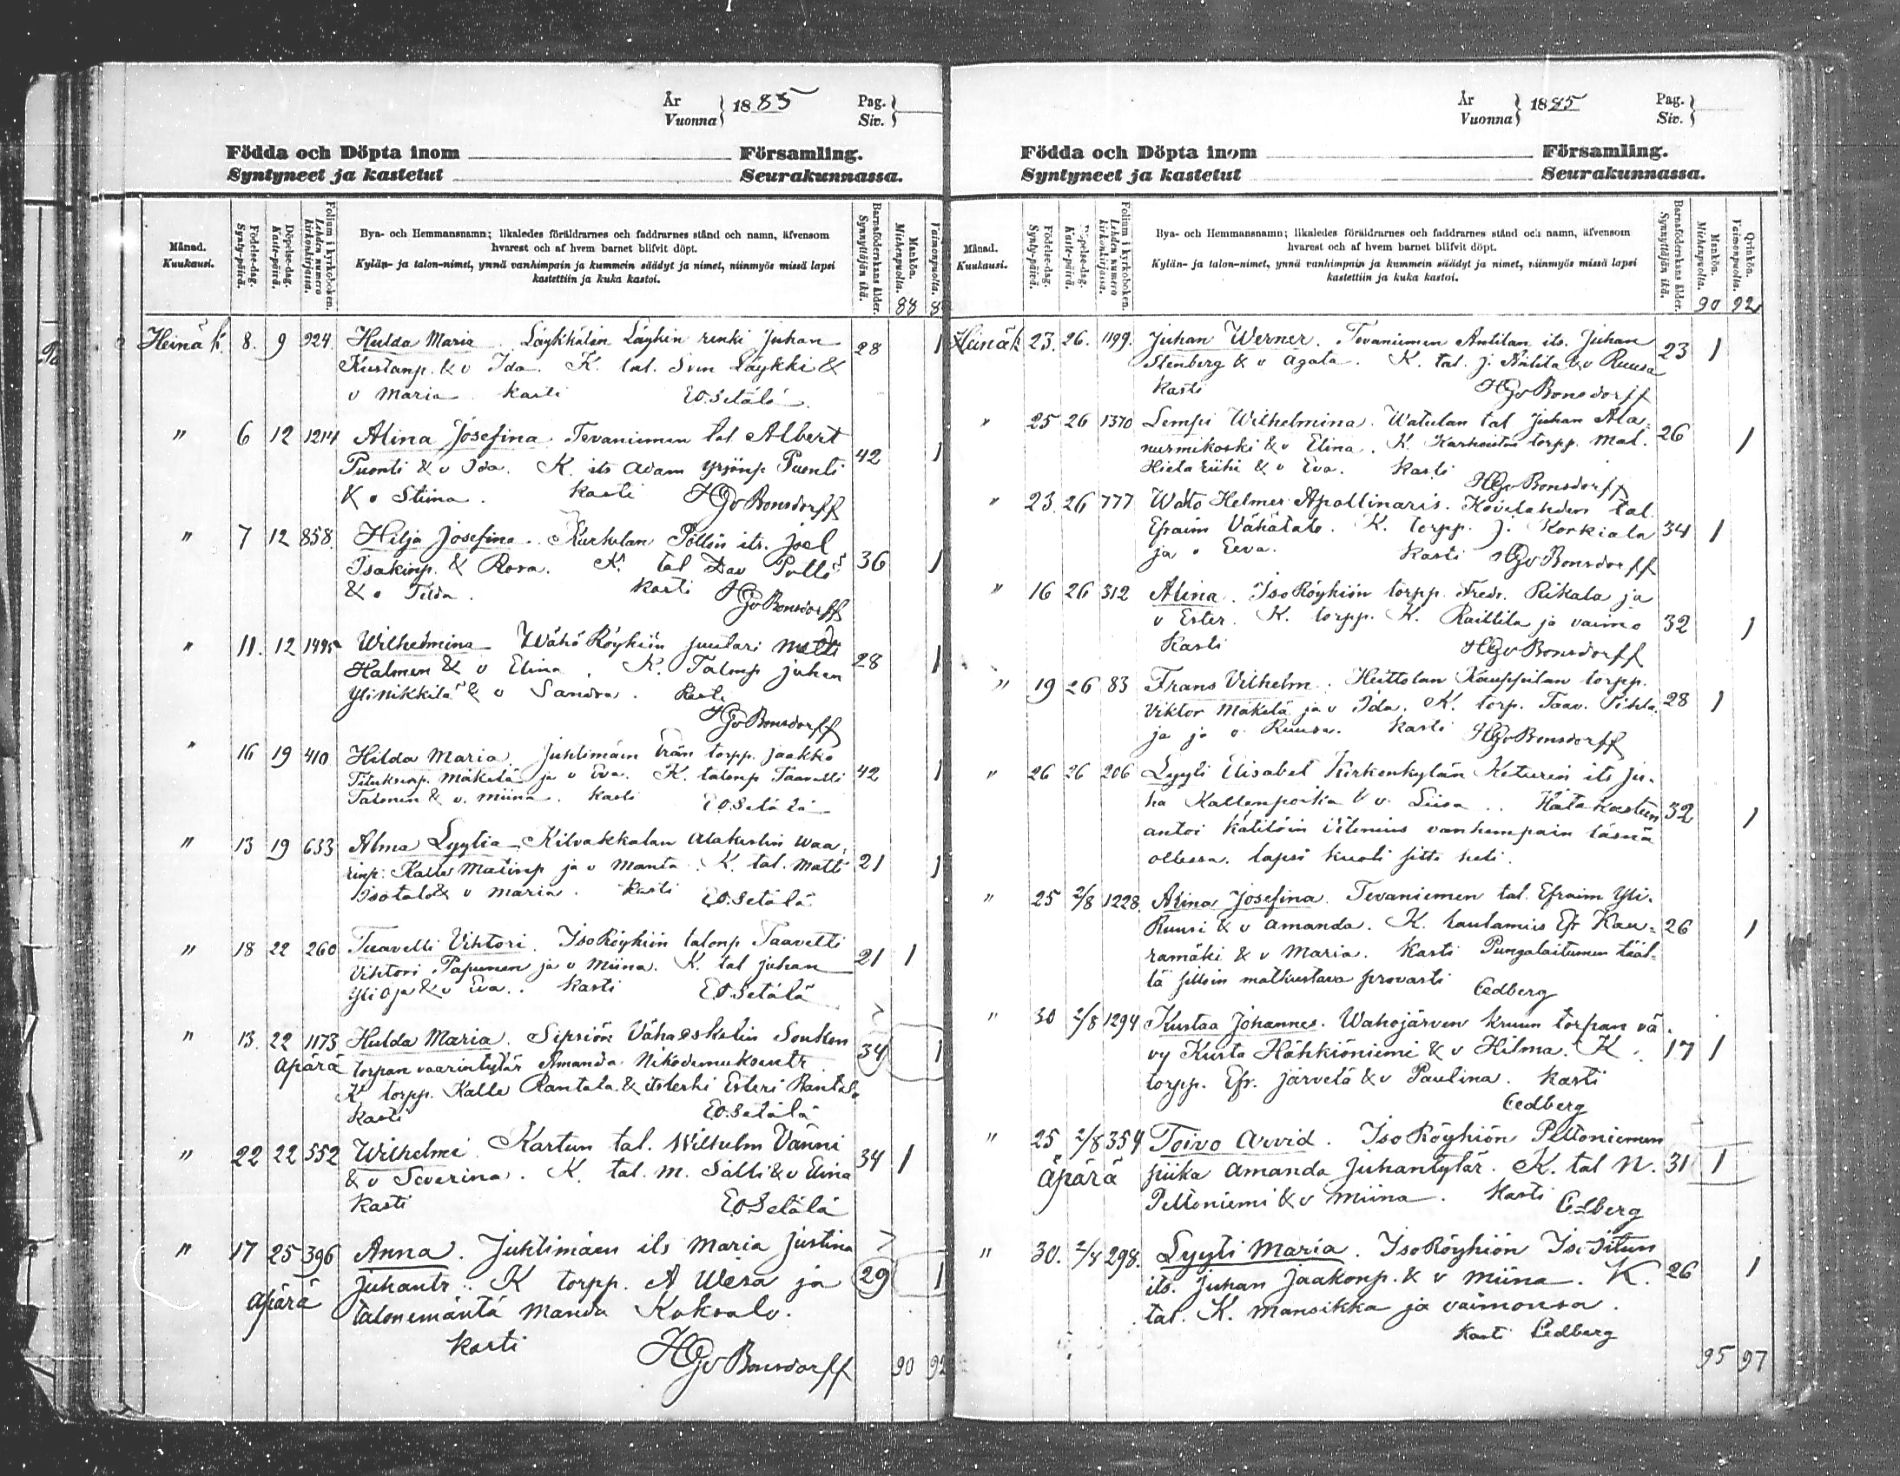 År
Vuonna } 1885 Pag.
Siv. }
Födda och Döpta inom Församling.
Syntyneet ja kastetut Seurakunnassa.
Månad.
Kuukausi.
Födelse-dag.
Synty-päivä.
Döpelse-dag.
Kaste-päivä.
Folium i kyrkoboken.
Lehden numero kirkonkirjassa.
Bya- och Hemmansnamn; likaledes föräldrarnes och faddrarnes stånd och namn, äfvensom
hvarest och af hvem barnet blifvit döpt.
Kylän- ja talon-nimet, ynnä vanhimpain ja kummein säädyt ja nimet, niinmyös missä lapsi
kastettiin ja kuka kastoi.
Barnaföderskans ålder.
Synnyttäjän ikä.
Mankön.
Miehenpuolia.
Vaimonpuolia.
88
Heinäk 8. 9 924 Hulda Maria. Läykkälän Läykin renki Juhan 28 1
Kustanp. & v Ida. K. tal. Sven Läykki &
v Maria kasti EO.Setälä.
" 6 12 1214 Alina Josefina. Tevaniemen tal Albert 42 1
Puonti & v Ida. K. its Adam Yrjönp Puonti
& v Stiina. kasti HGvBonsdorff
" 7 12 858. Hilja Josefina. Kurkelan Pöllön its. Joel 36 1
Isakinp. & Rosa. K. tal Dav Pöllö
& v Tilda. kasti HGvBonsdorff
" 11. 12 1495 Wilhelmina Wähä Röyhiön suutari Matti 28 1
Halmen & v Elina. K. Talonp Juhan
Ylinikkilä & v Sandra. kasti
HGvBonsdorff
" 16 19 410 Hilda Maria. Juhtimäen Erän torpp. Jaakko 42 1
Mäkelä ja v Eva. K. talonp Taavetti
Talonen & v. Miina. kasti EO.Setälä
" 13 19 633 Alma Lyytia. Kilvakkalan Alakartin waa- 21 1
rinp. Kalle Matinp ja v Manta. K. tal. Matti
Isotalo & v Maria. kasti EO.Setälä
" 18 22 260 Taavetti Vihtori. Iso Röyhiön talonp Taavetti 21 1
Vihtori Papunen ja v Miina. K. tal Juhan
Yli Oja & v Eva. kasti EO.Setälä
" 13. 22 1173 Hulda Maria. Sipsiön Vähaeskelin Soukon 34 1
Äpärä torpan vaarintytär Amanda Nikodemuksentr
K torpp. Kalle Rantala & itsleski Esteri Rantala
kasti EO.Setälä
" 22 22 552 Wilhelmi Kartun tal. Wilhelm Vänni 34 1
& v Severina. K. tal. M. Sälli & v Elina
kasti EO.Setälä
" 17 25 396 Anna. Juhtimäen its Maria Justina 29 1
Äpärä Juhantr. K torpp. A Wesa ja
talonemäntä Manda Koksalo.
kasti
HGvBonsdorff 90 92
År
Vuonna } 1885 Pag.
Siv. }
Födda och Döpta inom Församling.
Syntyneet ja kastetut Seurakunnassa.
Månad.
Kuukausi.
Födelse-dag.
Synty-päivä.
Döpelse-dag.
Kaste-päivä.
Folium i kyrkoboken.
Lehden numero kirkonkirjassa.
Bya- och Hemmansnamn; likaledes föräldrarnes och faddrarnes stånd och namn, äfvensom
hvarest och af hvem barnet blifvit döpt.
Kylän- ja talon-nimet, ynnä vanhimpain ja kummein säädyt ja nimet, niinmyös missä lapsi
kastettiin ja kuka kastoi.
Barnaföderskans ålder.
Synnyttäjän ikä.
Mankön.
Miehenpuolia.
Qvinkön.
Vaimonpuolia.
90 92
Heinäk 23. 26. 1199. Juhan Werner. Tevaniemen Anttilan its. Juhan 23 1
Stenberg & v Agata. K. tal. J. Anttila & v Ruusa
kasti HGvBonsdorff
" 25 26 1370 Lempi Wilhelmina. Watulan tal Juhan Ala- 26 1
nurmikoski & v Elina. K. torpp. Mat.
& v Eva. kasti HGvBonsdorff
" 23 26 777 Wäto Helmer Apollinaris. Kovelahden tal. 34 1
Efraim Vähätalo. K. torpp. J. Korkiala
ja v Eeva. kasti HGvBonsdorff
" 16 26 312 Alina. Iso Röyhiön torpp. Fredr. Rikala ja 32 1
v Ester. K. torpp. K. Raittila ja vaimo
kasti HGvBonsdorff
" 19 26 83 Frans Vilhelm. Heittolan Kauppilan torpp. 28 1
Viktor Mäkelä ja v Ida. K. torp. Taav.
ja v Ruusa. kasti HGvBonsdorff
" 26 26 206 Lyyti Elisabet Kirkonkylän Keturin its Ju- 32 1
ha Kallenpoika & v. Liisa.. Hätäkasteen
antoi kätilöin Vilenius vanhempain läsnä
ollessa. lapsi kuoli sitte heti.
" 25 2/8 1228. Alina Josefina. Tevaniemen tal. Efraim Yli- 26 1
Ruusi & v Amanda. K. lautamies Efr Kau-
ramäki & v Maria. kasti Pungalaitumen tääl-
tä silloin matkustava provasti Cedberg
" 30 2/8 1294 Kustaa Johannes. Wahojärven kruun torpan vä 17 1
vy Kusta Hähkiöniemi & v Hilma. K.
torpp. Efr. Järvelä & v Paulina. kasti
Cedberg
" 25 2/8 354 Toivo Arvid. Iso Röyhiön Peltoniemen 31 1
Äpärä piika Amanda Juhantytär. K. tal N.
Peltoniemi & v Miina. kasti Cedberg
" 30. 2/8 298. Lyyti Maria. Iso Röyhiön 26 1
its. Juhan Jaakonp. & v Miina. K.
tal. K. Mansikka ja vaimonsa.
kasti Cedberg
95 97